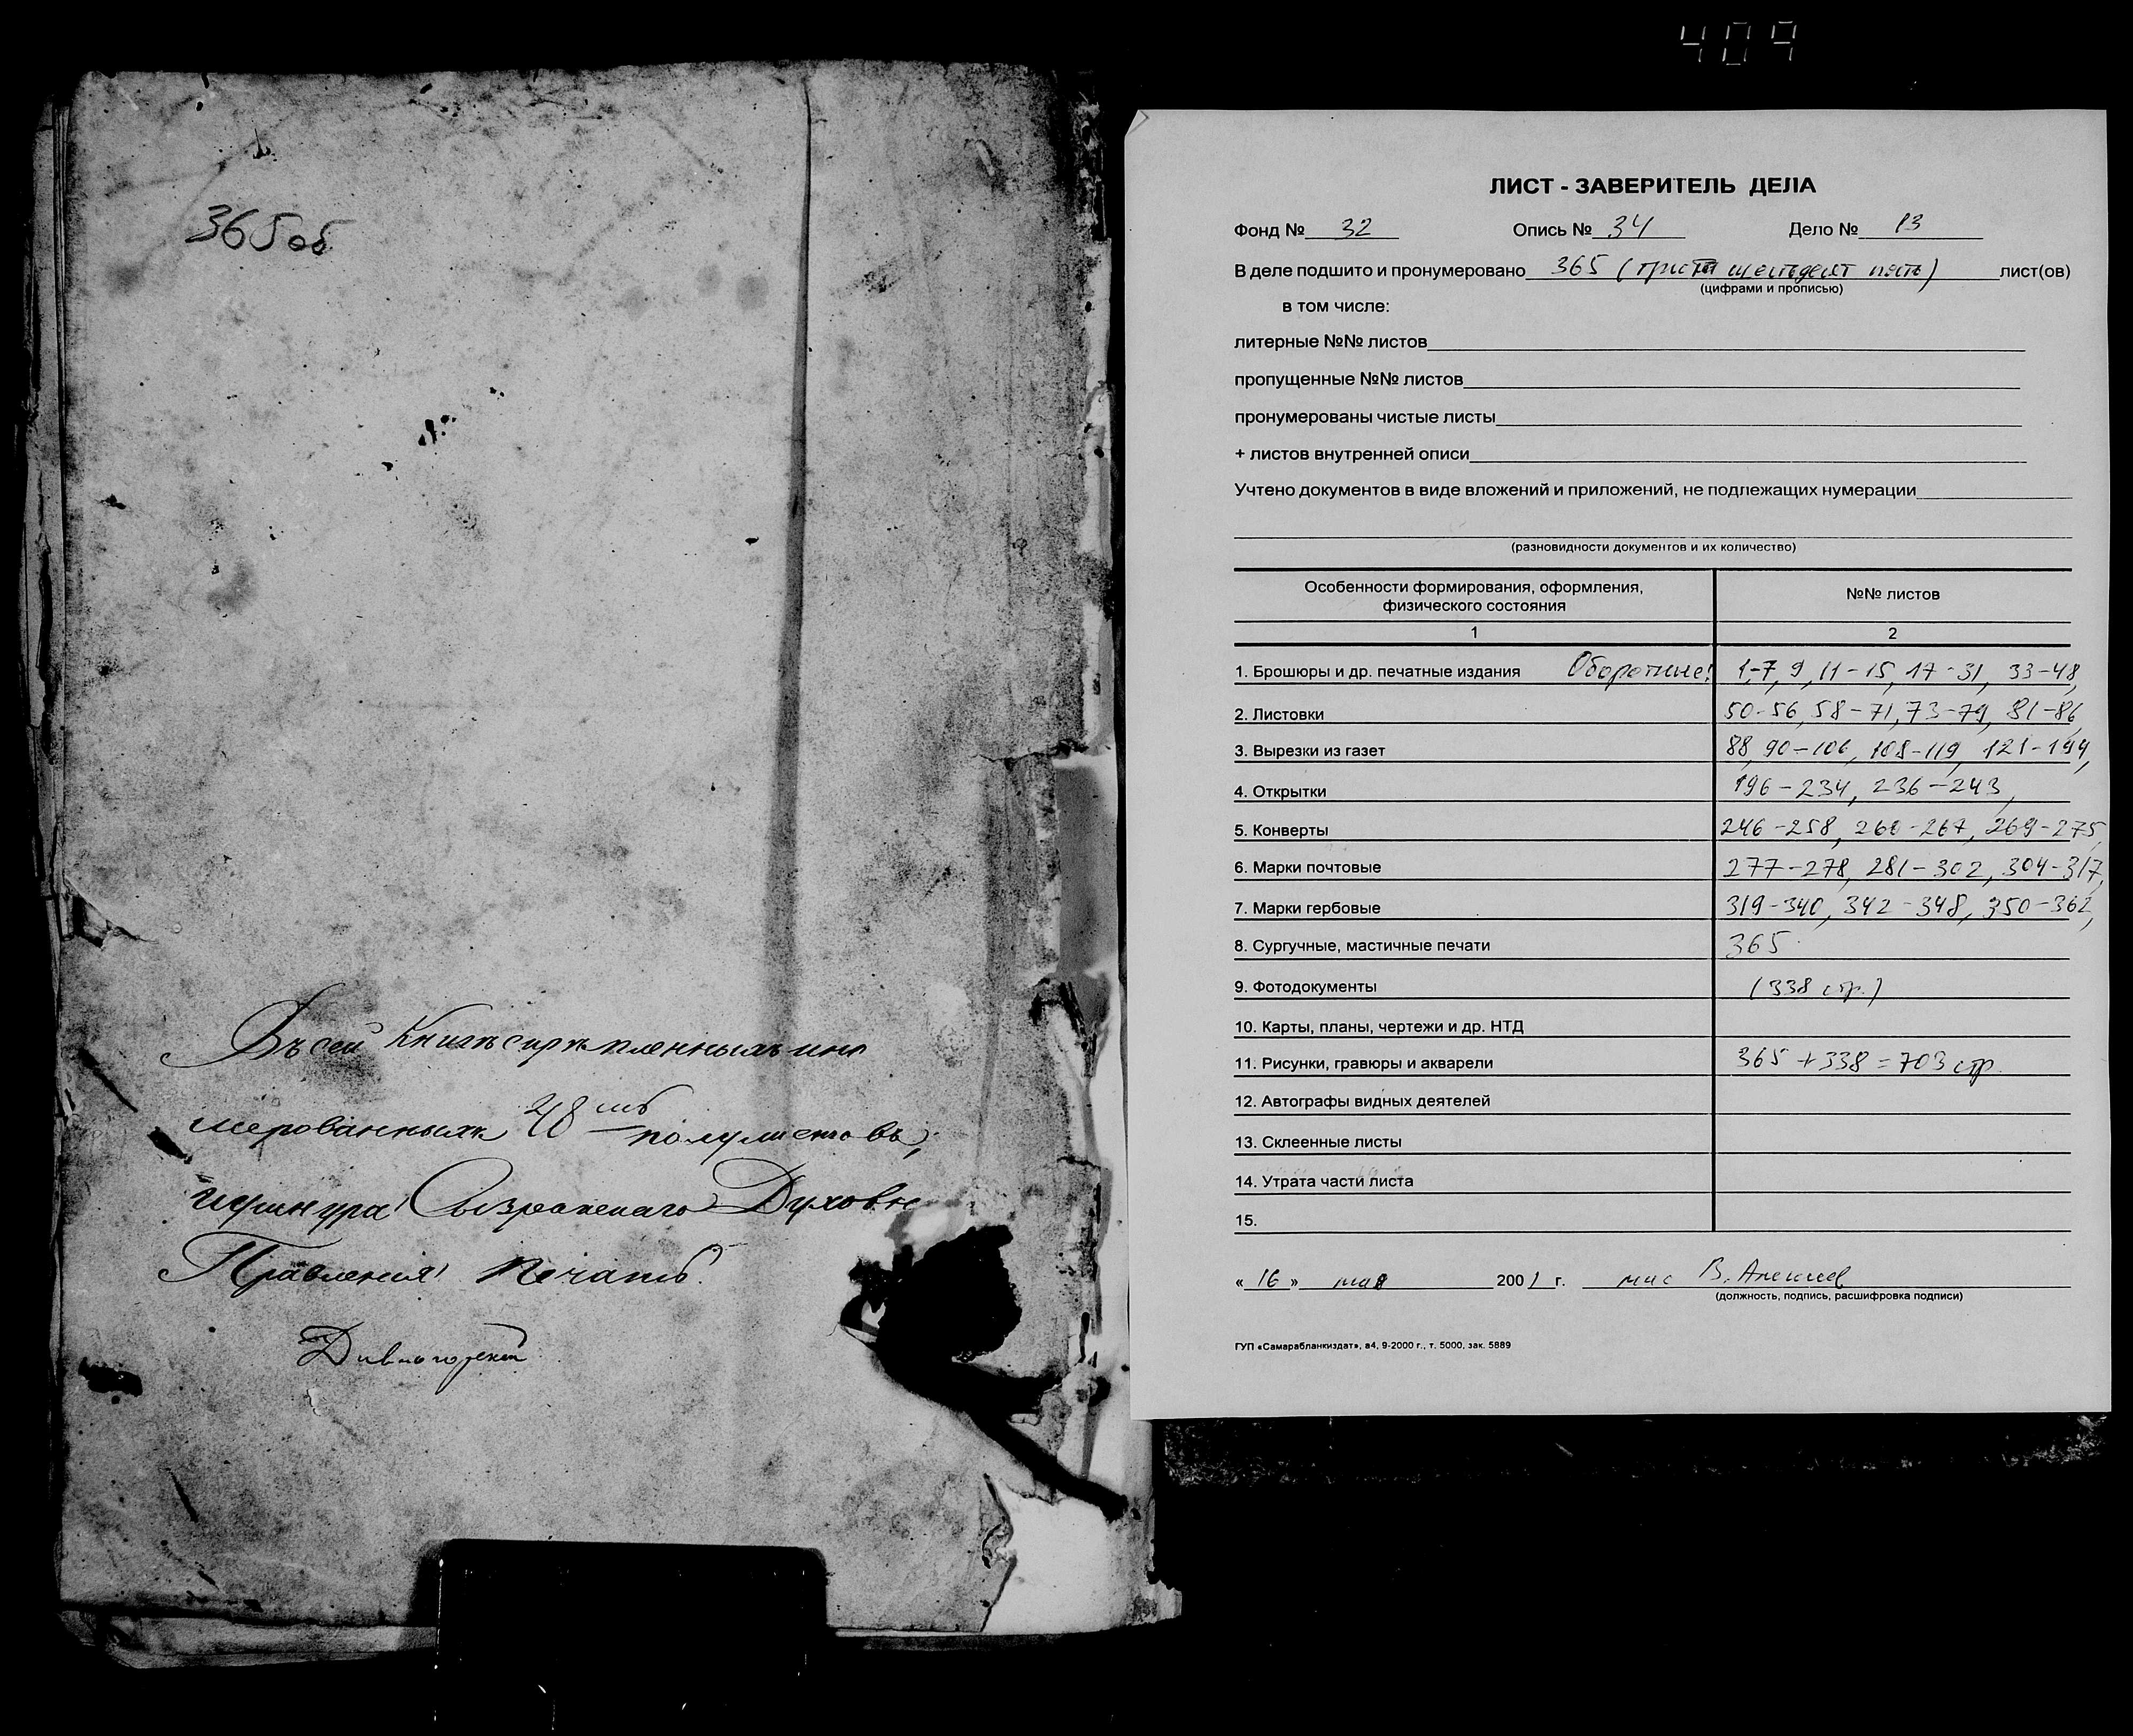 409
365 об
Въ сей Книгѣ скрѣпленныхъ и ну
мерованныхъ 48 мь полулистовъ,
и шнура Сызранскаго Духовн
Правленія печать.
ЛИСТ - ЗАВЕРИТЕЛЬ ДЕЛА
Фонд № 32 Опись № 34 Дело № 13
В деле подшито и пронумеровано 365 (триста шестьдесят пять) лист(ов)
(цифрами и прописью)
в том числе:
литерные №№ листов
пропущенные №№ листов
пронумерованы чистые листы
+ листов внутренней описи
Учтено документов в виде вложений и приложений, не подлежащих нумерации
(разновидности документов и их количество)
Особенности формирования, оформления,
физического состояния
№№ листов
1 2
1. Брошюры и др. печатные издания Оборотные: 1-7, 9, 11-15, 17-31, 33-48,
2. Листовки 50-56, 58-71, 73-79, 81-86,
3. Вырезки из газет 88, 90-106, 108-119, 121-194,
4. Открытки 196-234, 236-243,
5. Конверты 246-258, 260-267, 269-275,
6. Марки почтовые 277-278, 281-302, 304-317,
7. Марки гербовые 319-340, 342-348, 350-362,
8. Сургучные, мастичные печати 365.
9. Фотодокументы (338 стр.)
10. Карты, планы, чертежи и др. НТД
11. Рисунки, гравюры и акварели 365 + 338 = 703 стр.
12. Автографы видных деятелей
13. Склеенные листы
14. Утрата части листа
15.
« 16 » мая 2001 г. В. Алексеев
(должность, подпись, расшифровка подписи)
ГУП «Самарабланкиздат», а4, 9-2000 г., т. 5000, зак. 5889